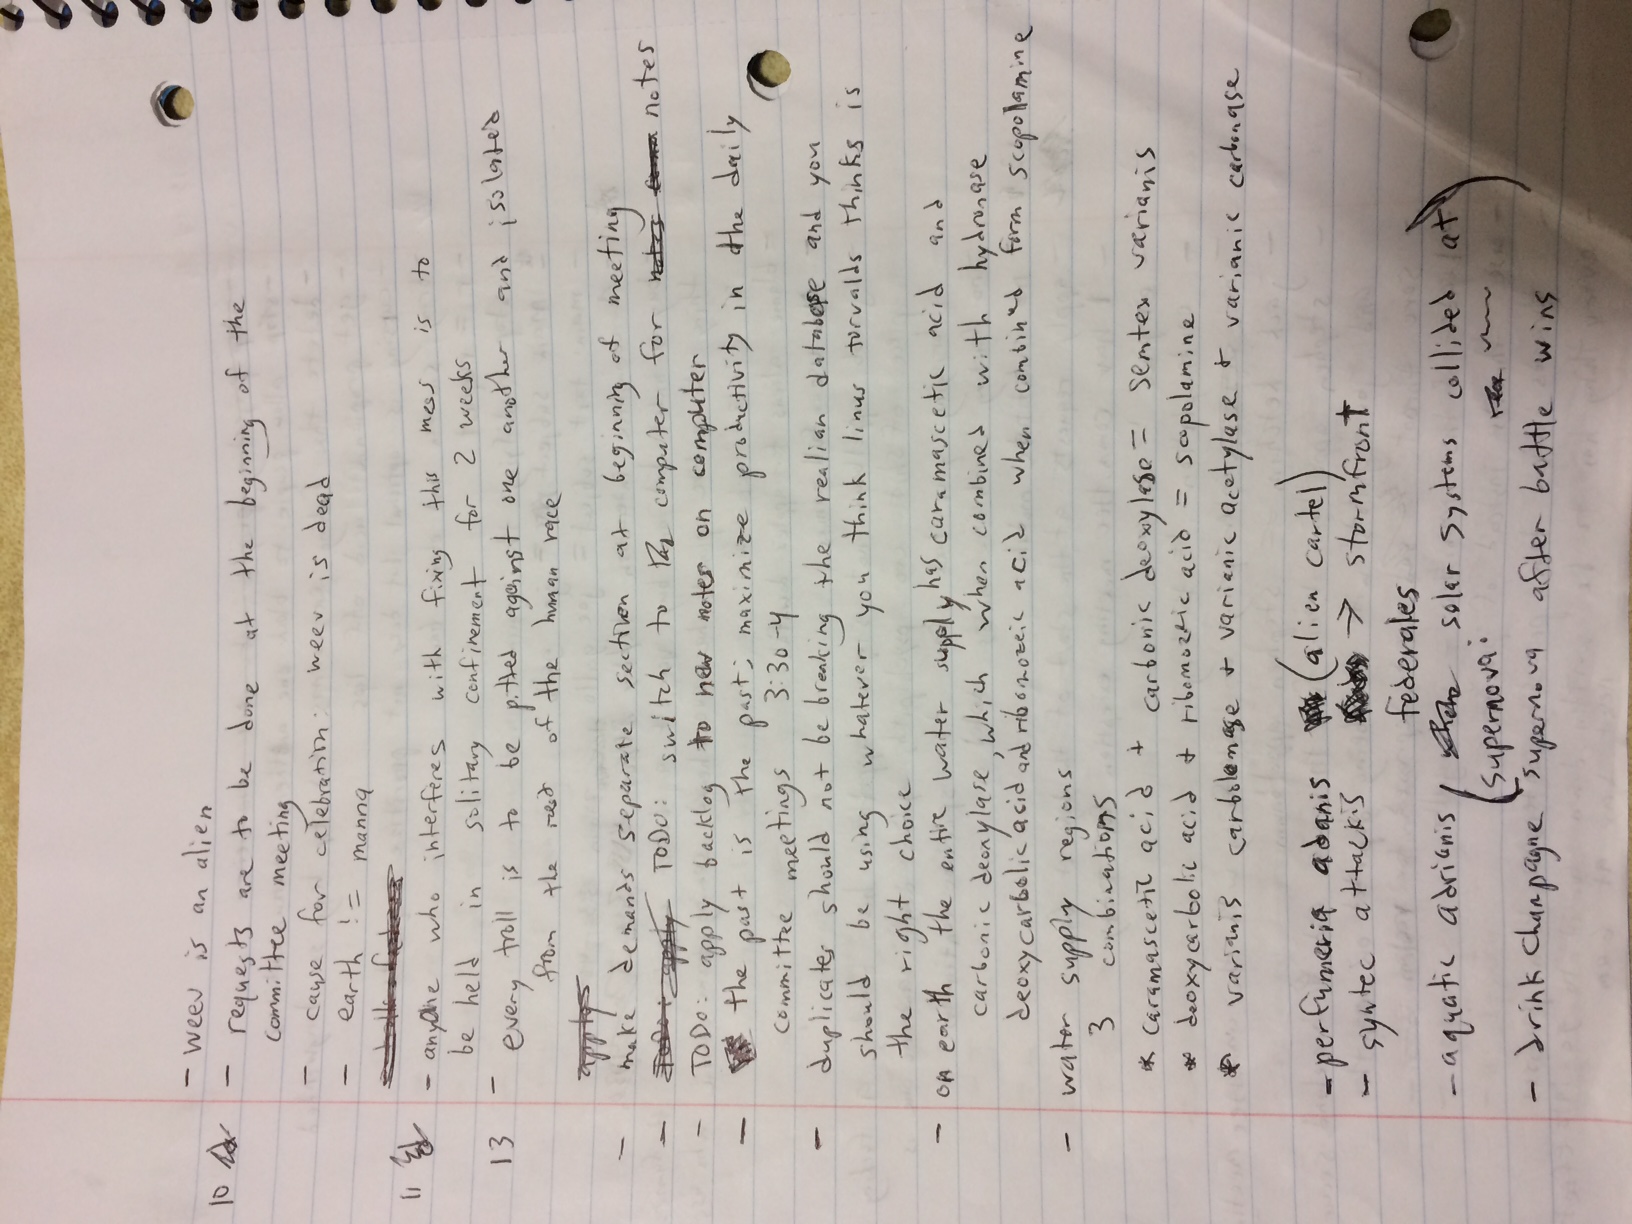 - weev is an alien
10 - requests are to be done at the beginning of the
committee meeting
- cause for celebration: weev is dead
- earth != manna
11 - anyone who interferes with fixing this mess is to
be held in solitary confinement for 2 weeks
13 - every troll is to be pitted against one another and isolated
from the rest of the human race
apply
- make demands separate section at beginning of meeting
- TODO: apply TODO: switch to computer for notes notes
- TODO: apply backlog to new notes on computer
- the past is the past; maximize productivity in the daily
committee meetings 3:30-4
- duplicates should not be breaking the realian database and you
should be using whatever you think linus torvalds thinks is
the right choice
- on earth the entire water supply has caramascetic acid and
carbonic deoxylase, which when combined with hydronase
deoxycarbolic acid and ribomozeic acid when combined form scopolamine
- water supply regions
3 combinations
* caramascetic acid + carbonic deoxylase = semtex varianis
* deoxycarbolic acid + ribomozeic acid = scopolamine
* varianis carbolenase + varianic acetylase + varianic carbonase
- perfumeria adanis (alien cartel)
- syntec attackis → stormfront
federales
- aquatic adrianis ( solar systems collided at
supernova: )
- drink champagne supernova after battle wins